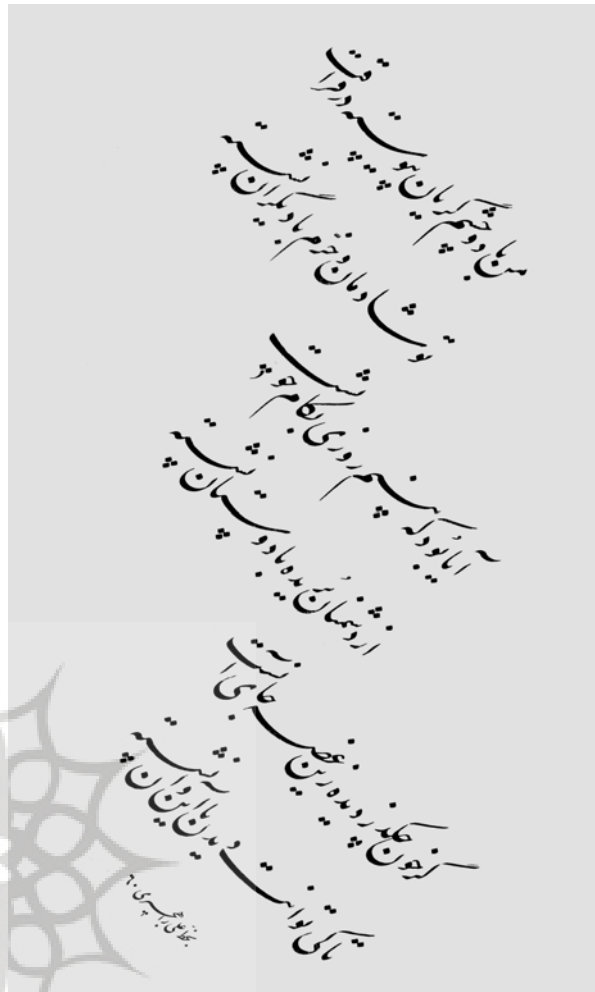 من با دو چشم گریان پیوسته در فراقت
تو شادمان و خرم با دیگران نشسته
آیا بود که بینم روزی بکام خویشت
از دشمنان بریده با دوستان نشسته
گر خون چکد ز دیده زین غصه جای آنست
تا کی توانمت دیدن با این و آن نشسته
بخط علی